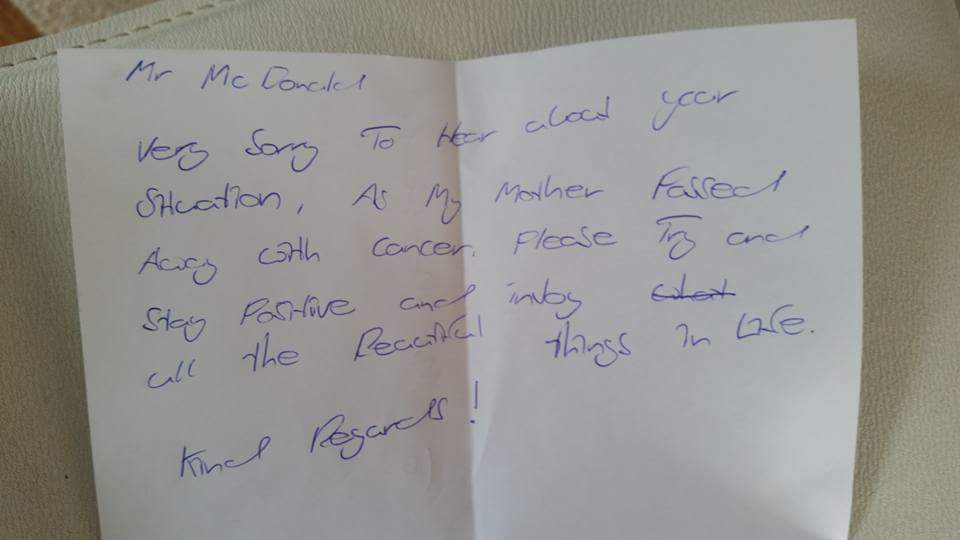 Mr McDonald
Very Sorry To Hear about your
Situation, As My Mother Passed
Away with cancer. Please Try and
Stay Positive and injoy what
all the Beautiful things in Life.
Kind Regards!